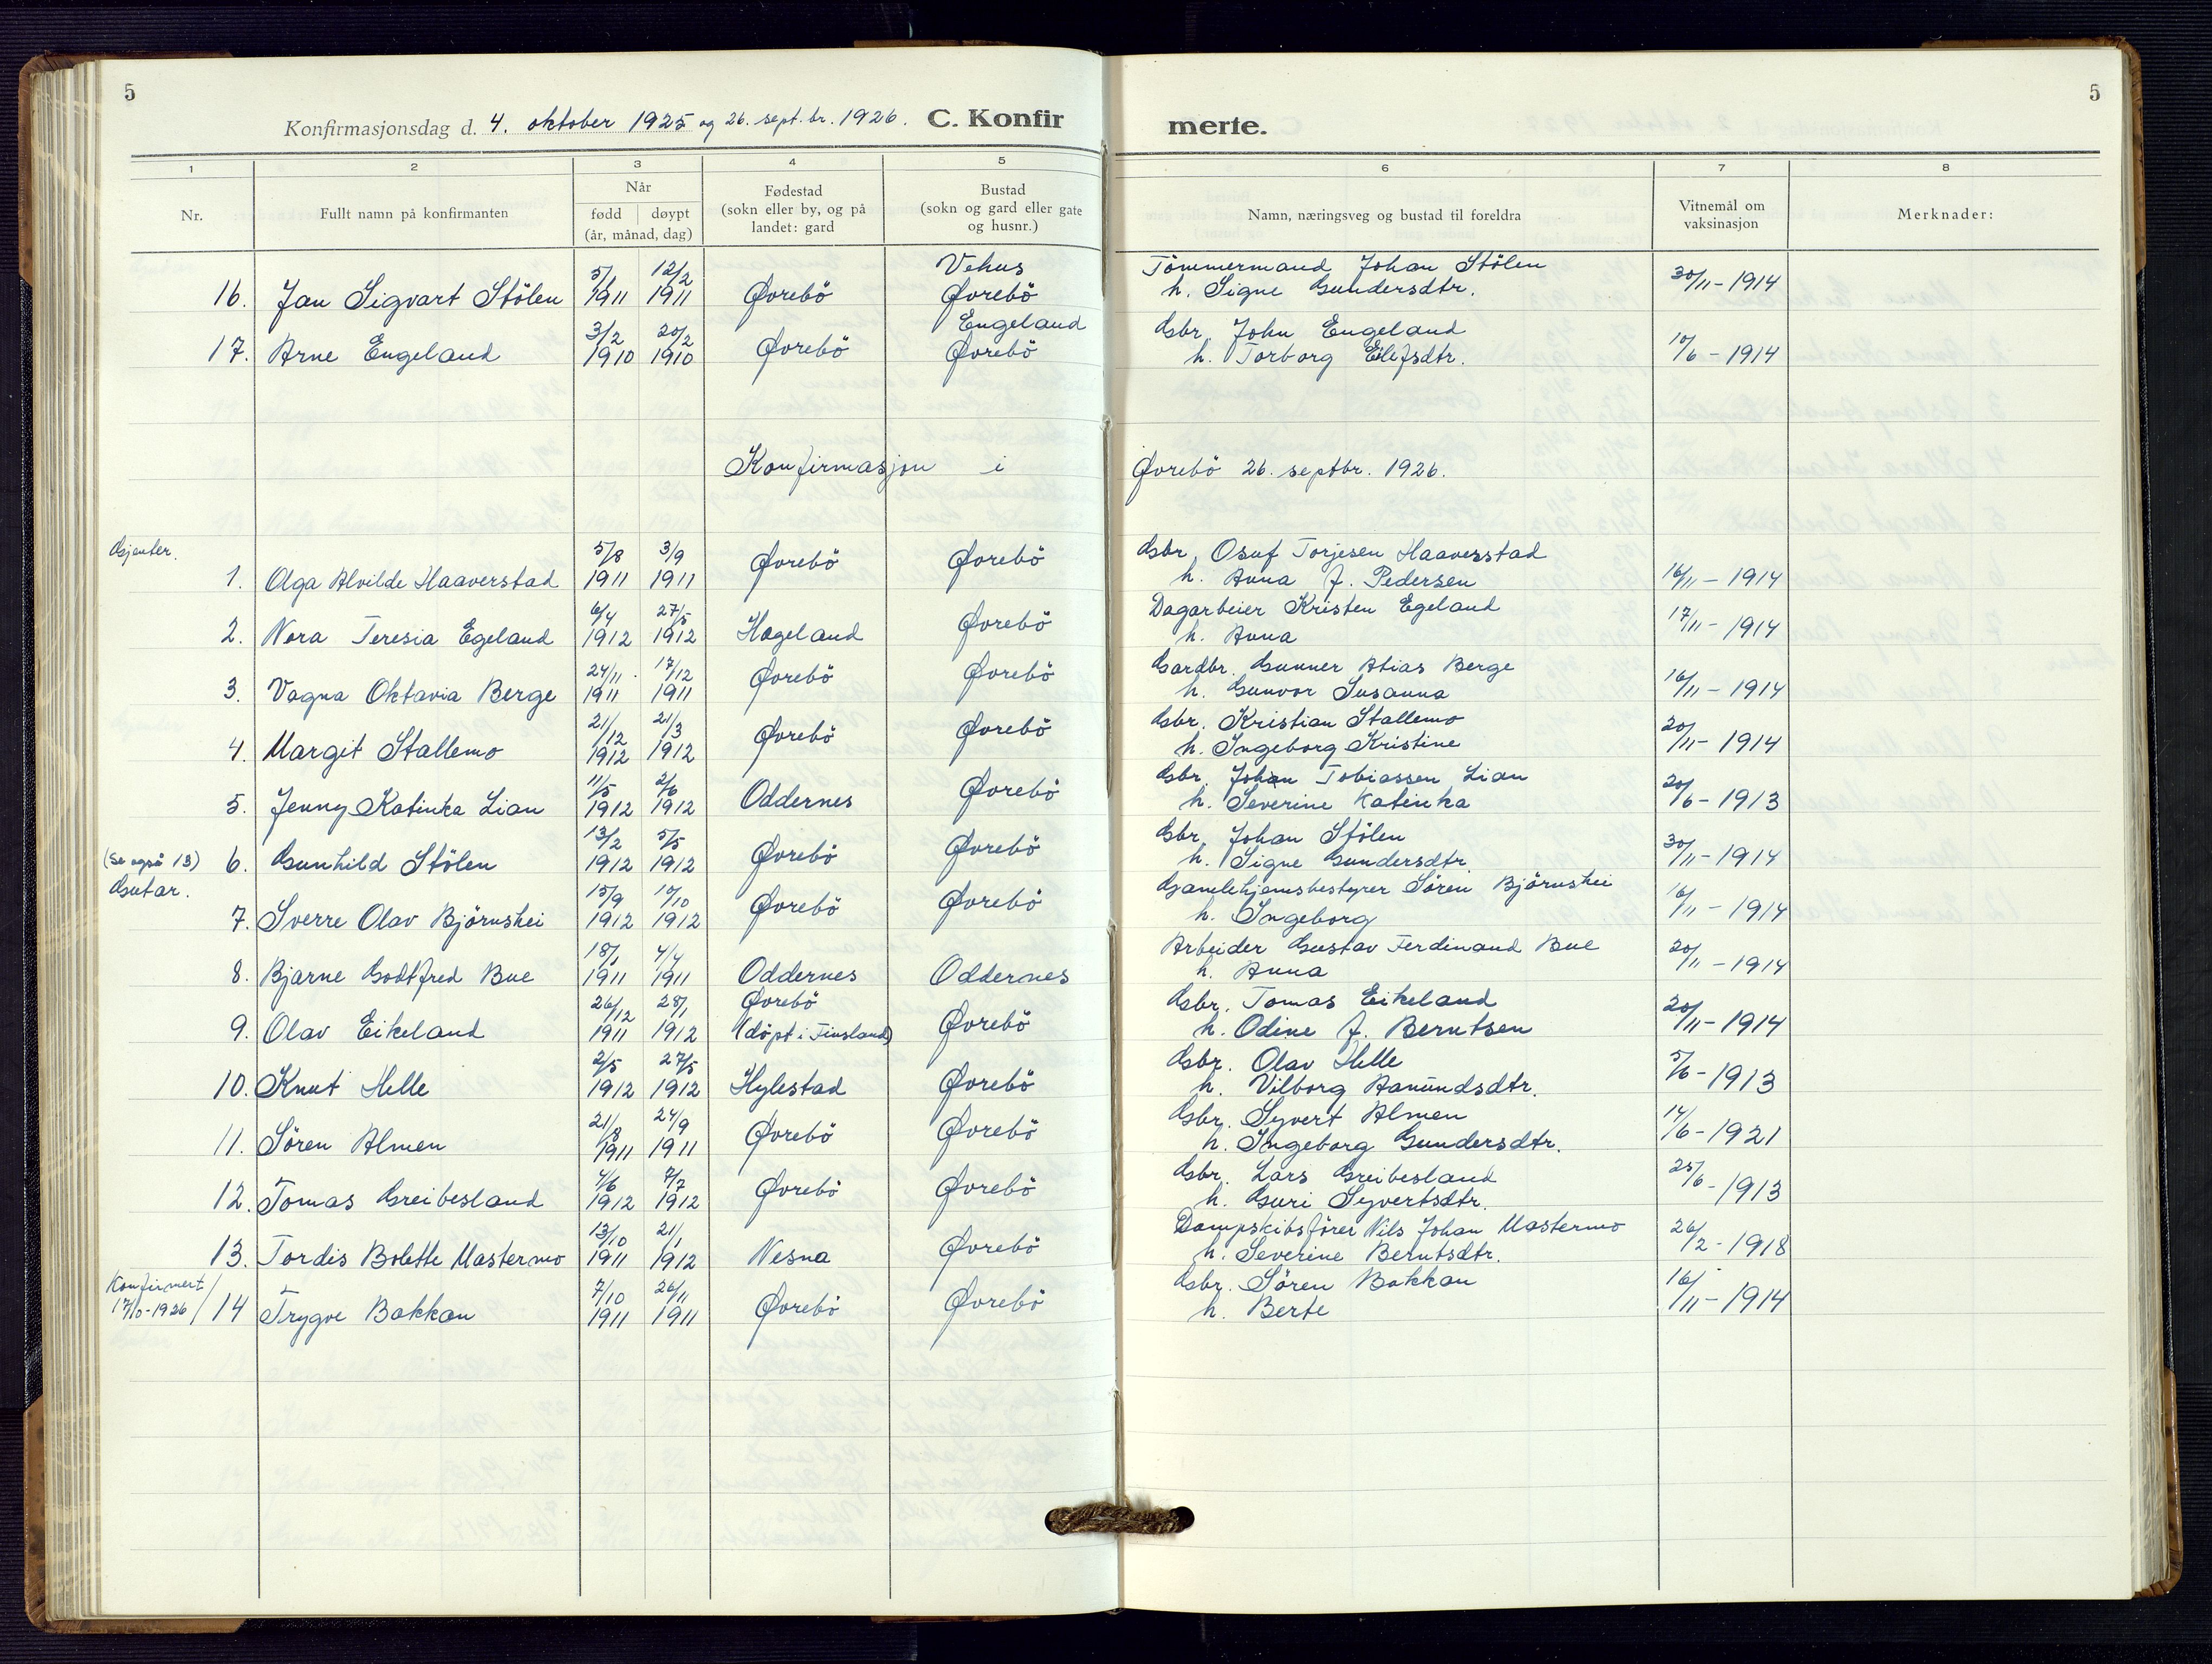 5
5
Konfirmasjonsdag d. 4. oktober 1925 og 26. sept.br. 1926. C. Konfir merte.
1 2 3 4 5 6 7 8
Nr. Fullt namn på konfirmanten Når fødd døypt (år, månad, dag) Fødestad (sokn eller by, og på landet: gard Bustad (sokn og gard eller gate og husnr.) Namn, næringsveg og bustad til foreldra Vitnemål om vaksinasjon Merknader:
5/1 12/2 Vehus Tömmermand Johan Stölen
16. Jan Sigvart Stölen 1911 1911 Øvrebö Øvrebö h. Signe Gundersdtr. 30/11-1914
3/2 20/2 Engeland Gbr. John Engeland
17. Arne Engeland 1910 1910 Øvrebö Øvrebö h. Torborg Eilefsdtr. 10/6-1914
Konfirmasjon i Øvrebö 26. septbr. 1926.
Gjenter. 5/8 3/9 Øvrebö Øvrebö Gbr. Osuf Torjesen Haaverstad
1. Olga Alvilde Haaverstad 1911 1911 h. Anna f. Pedersen 16/11-1914
6/4 27/5 Dagarbeier Kristen Egeland
2. Nora Teresia Egeland 1912 1912 Hægeland Øvrebö h. Anna 17/11-1914
24/11 17/12 Gardbr. Gunner Atias Berge
3. Vagna Oktavia Berge 1911 1911 Øvrebö Øvrebö h. Gunvor Susanna 16/11-1914
21/12 21/3 Gbr. Kristian Stallemo
4. Margit Stallemo 1912 1912 Øvrebö Øvrebö h. Ingeborg Kristine 20/11-1914
11/5 2/6 Gbr. Johan Tobiassen Lian
5. Jenny Katinka Lian 1912 1912 Oddernes Øvrebö h. Severine Katinka 20/6-1913
13/2 5/5 Gbr. Johan Stölen
(Se også 13) 6. Gunhild Stölen 1912 1912 Øvrebö Øvrebö h. Signe Gundersdtr. 30/11-1914
Gutar. 15/9 10/10 Gamlehjemsbestyrer Sören Björnshei
7. Sverre Olav Björnshei 1912 1912 Øvrebö Øvrebö h. Ingeborg 16/11-1914
18/1 4/4 Arbeider Gustav Ferdinand Bue
8. Bjarne Godtfred Bue 1911 1911 Oddernes Oddernes h. Anna 20/11-1914
26/12 28/1 Øvrebö Gbr. Tomas Eikeland
9. Olav Eikeland 1911 1912 (döpt i Finsland) Øvrebö h. Odine f. Berntsen 20/11-1914
2/5 27/5 Gbr. Olav Helle
10. Knut Helle 1912 1912 Hylestad Øvrebö h. Vilborg Aanundsdtr. 5/6-1913
21/8 24/9 Gbr. Syvert Almen
11. Sören Almen 1911 1911 Øvrebö Øvrebö h. Ingeborg Gundersdtr. 14/6-1921
4/6 7/7 Gbr. Lars Greibesland
12. Tomas Greibesland 1912 1912 Øvrebö Øvrebö h. Guri Syvertsdtr. 25/6-1913
13/10 21/1 Dampskibsförer Nils Johan Mastermo
13. Tordis Bolette Mastermo 1911 1912 Nesna Øvrebö h. Severine Berntsdtr. 26/2-1918
Konfirmert 7/10 26/11 Gbr. Sören Bakkan
17/10-1926 / 14 Trygve Bakkan 1911 1911 Øvrebö Øvrebö h. Berte 16/11-1914